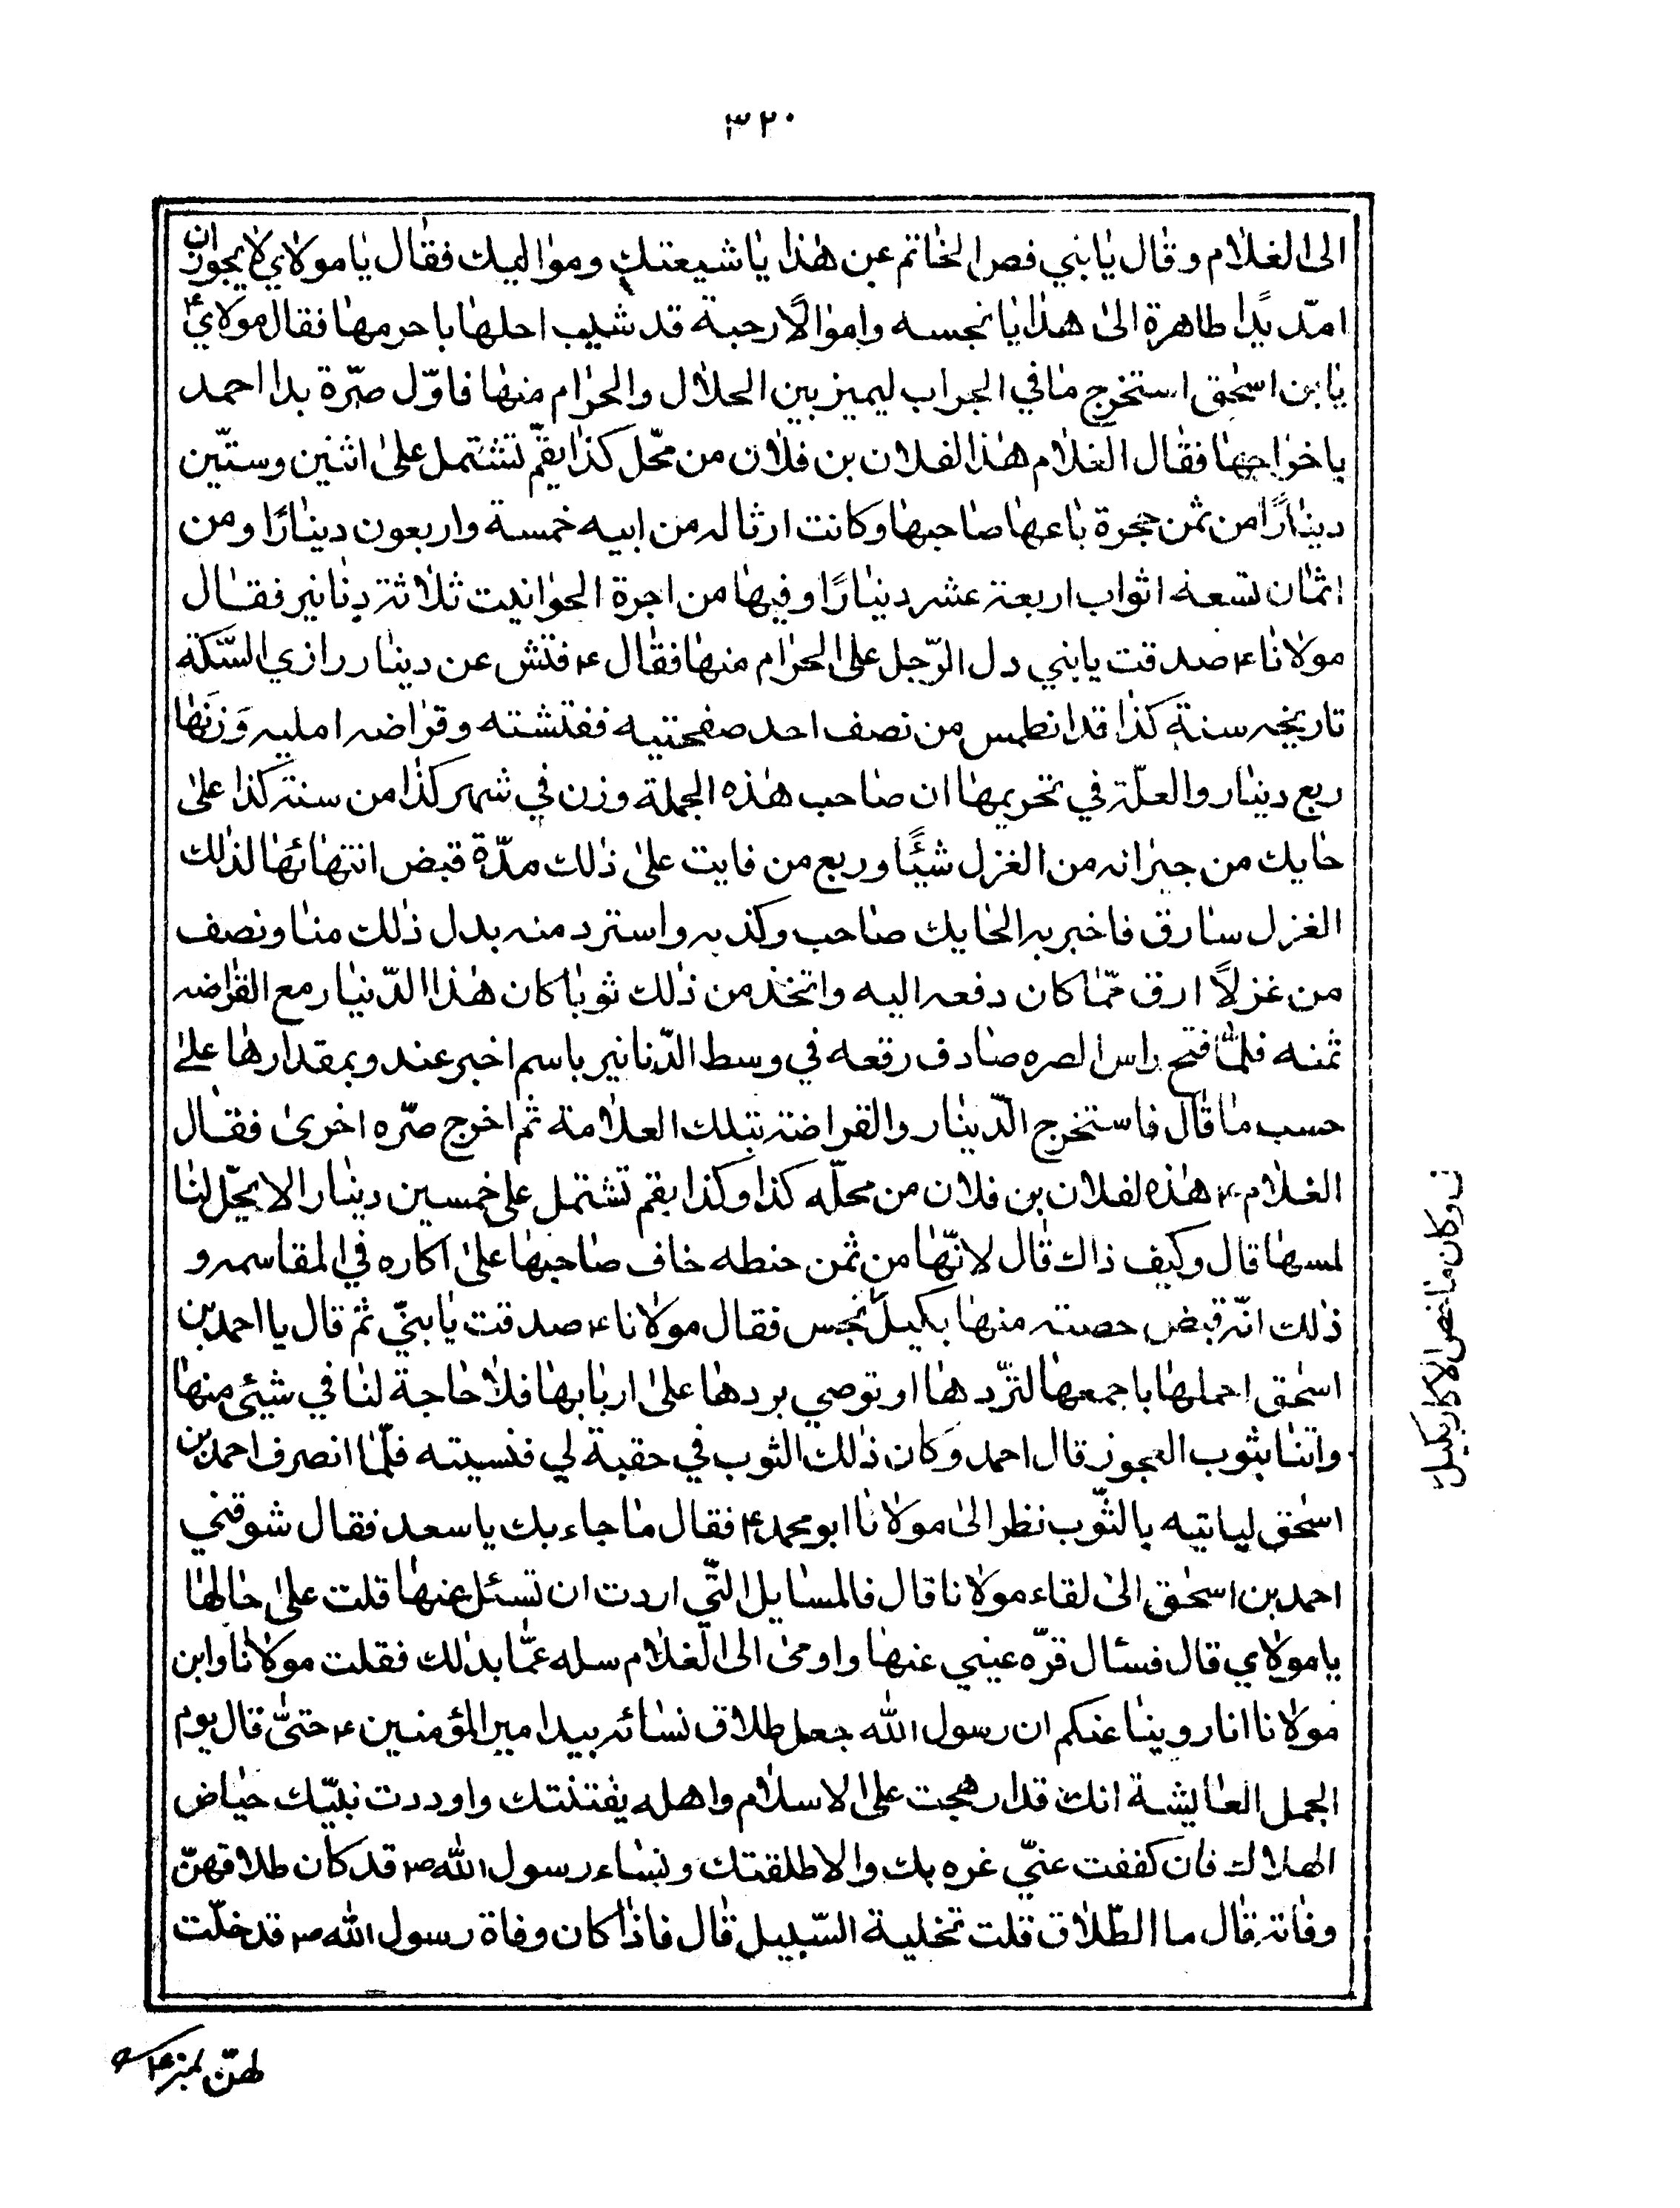 ٣٢٠
الى الغلام وقال يا بني فص الخاتم عن هذا يا شيعتك ومواليك فقال يا مولاي لا يجوز ان
امدّ يدًا طاهرة الى هذا يا نجسه واموالًا رجبة قد شيب احلها باحرمها فقال مولاي ع
يا بن اسحق استخرج ما في الجراب ليميز بين الحلال والحرام منها فاوّل صرّة بدا احمد
باخراجها فقال الغلام هذا لفلان بن فلان من محّل كذا بقمّ تشتمل على اثنين وستّين
دينارًا من ثمن حجرة باعها صاحبها وكانت ارثا له من ابيه خمسة واربعون دينارًا ومن
اثمان تسعه اثواب اربعة عشر دينارًا وفيها من اجرة الحوانيت ثلاثة دنانير فقال
مولانا ع صدقت يا بني دل الرّجل على الحرام منها فقال ع فتش عن دينار رازي السّكة
تاريخه سنة كذا قد انطمس من نصف احد صفحتيه ففتشته وقراضه امليه وزنها
ربع دينار والعلّة في تحريمها ان صاحب هذه الجملة وزن في شهر كذا من سنة كذا على
حايك من جيرانه من الغزل شيئًا وربع من فايت على ذلك مدّة قبض انتهائها لذلك
الغزل سارق فاخبر به الحايك صاحب وكذبه واسترد منه بدل ذلك منا ونصف
من غزلًا ارق ممّا كان دفعه اليه واتخذ من ذلك ثوبا كان هذا الدّينار مع القراضه
ثمنه فلمّا فتح راس الصره صادف رقعه في وسط الدّنانير باسم اخبر عند وبمقدارها على
حسب ما قال فاستخرج الدّينار والقراضة بتلك العلامة ثم اخرج صرّه اخرى فقال
الغلام ع هذه لفلان بن فلان من محلّه كذا وكذا بقم تشتمل على خمسين دينارا لا يحّل لنا
لمسها قال وكيف ذاك قال لانّها من ثمن حنطه خاف صاحبها على اكاره في المقاسمه و
ذلك انّه قبض حصته منها بكيل نجس فقال مولانا ع صدقت يا بنيّ ثم قال يا احمد بن
اسحق احملها باجمعها لتردّها او توصي بردها على اربابها فلا حاجة لنا في شيئى منها
واتنا بثوب العجوز قال احمد وكان ذلك الثوب في حقبة لي فنسيته فلّما انصرف احمد بن
اسحق لياتيه بالثّوب نظر الى مولانا ابو محمد ع فقال ما جاء بك يا سعد فقال شوقني
احمد بن اسحق الى لقاء مولانا قال فالمسايل التّي اردت ان تسئل عنها قلت على حالها
يا مولاي قال فسئال قرّه عيني عنها واومى الى الغلام سله عمّا بدلك فقلت مولانا وابن
مولانا انا روينا عنكم ان رسول الله جعل طلاق نسائه بيد امير المؤمنين ع حتىّ قال يوم
الجمل العايشة انك قد ارهجت على الاسلام واهله يفتنتك واوردت نبيّك حياض
الهلاك فان كففت عنيّ غره بك والا طلقتك ونساء رسول الله ص قد كان طلاقهنّ
وفاته قال ما الطّلاق قلت تخلية السّبيل قال فاذا كان وفاة رسول الله ص قد خلّت
لهنّ
ن وكان ما خص الاكار بكيل